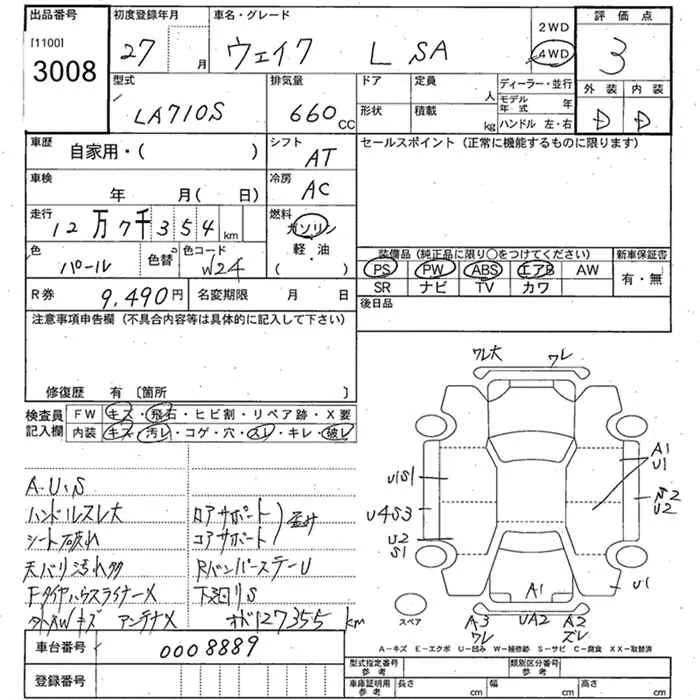 出品番号 初度登録年月 車名・グレード 2WD 評価点
[1100] 3008 27 月 ウェイク L SA 4WD 3
型式 排気量 ドア 定員 人 ディーラー・並行 外装 内装
LA710S 660 CC 形状 積載 kg モデル年式 年 D D
ハンドル 左・右
車歴 自家用・( ) シフト AT セールスポイント (正常に機能するものに限ります)
車検 年 月( 日) 冷房 AC
走行 12万7千354 km 燃料 ガソリン
軽・油
( )
色 パール 色替 色コード W24
装備品 (純正品に限り○をつけてください) 新車保証書
PS PW ABS エアB AW 有・無
SR ナビ TV カワ
R券 9,490円 名変期限 月 日 後日品
注意事項申告欄 (不具合内容等は具体的に記入して下さい)
修復歴 有 〔箇所 〕
検査員記入欄 FW キズ・飛石・ヒビ割・リペア跡・X要
内装 キズ・汚レ・コゲ・穴・スレ・キレ・破レ
ワレ大 ワレ
A1
U1
U1S1
S2
U2
U4S3
U2
S1
U1
A1
A3 UA2 A2
ワレ ズレ
スペア
A.U.S
ハンドルスレ大 ロアサポート
シート破れ コアサポート
天バリ汚れ多 RバンパーステーU
FタイヤハウスライナーX 下廻りS
キズ アンテナX オド127355 km
A－キズ E－エクボ U－凹み W－補修跡 S－サビ C－腐食 XX－取替済
車台番号 0008889
登録番号
型式指定番号 参考 類別区分番号 参考
車庫証明用 参考 長さ cm 幅 cm 高さ cm